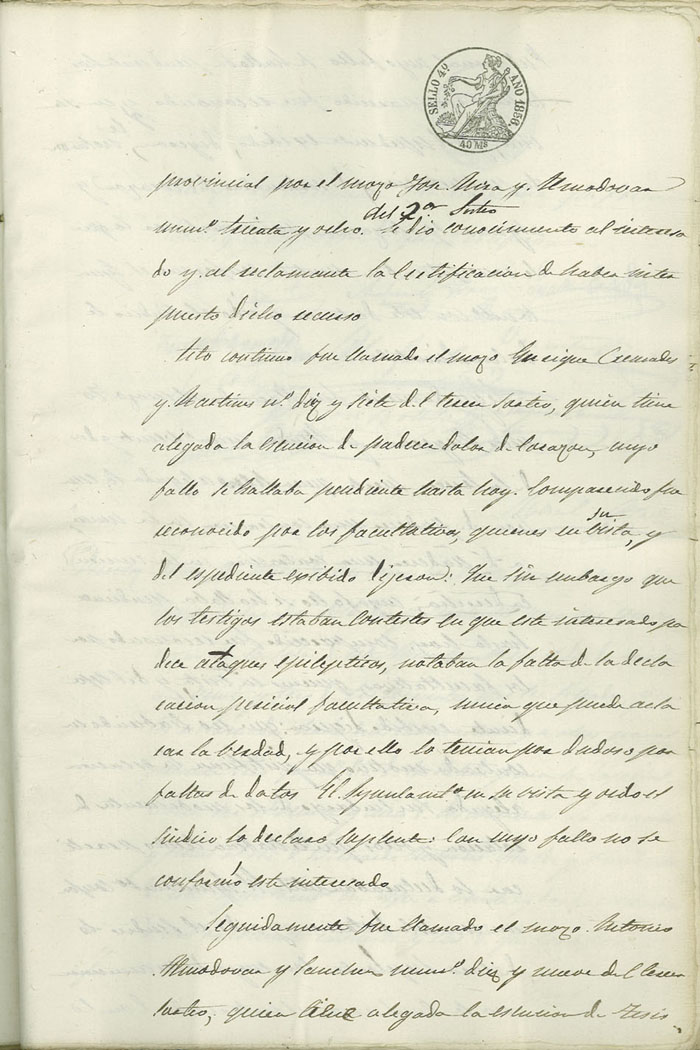 SELLO 4º AÑO 1856.
40 Ms
provincial por el mozo José Mira y Almodovar
del 2or Sorteo
numº treinta y ocho. Se dio conocimiento al interesa
do y al reclamante la Certificacion de haber inter
puesto dicho recurso
Acto continuo fue llamado el mozo Enrique Cremades
y Martines nº diez y siete del tercer Sorteo, quien tiene
alegada la esencion de padecer dolor de Corazon, cuyo
fallo se hallaba pendiente hasta hoy. Comparecido fue
reconocido por los facultativos, quienes en su vista, y
del espediente exibido dijeron: Que sin embargo que
los testigos estaban contestes en que este interesado pa
dece ataques epilepticos, notaban la falta de la decla
racion pericial facultativa, unica que puede acla
rar la verdad, y por ello lo tenian por dudoso por
faltas de datos. El Ayuntamto en su vista y oido el
sindico lo declaro suplente: Con cuyo fallo no se
conformó este interesado
Seguidamente fue llamado el mozo Antonio
Almodovar y Sanchez numº diez y nueve del tercer
sorteo, quien tiene alegada la esencion de Tisis